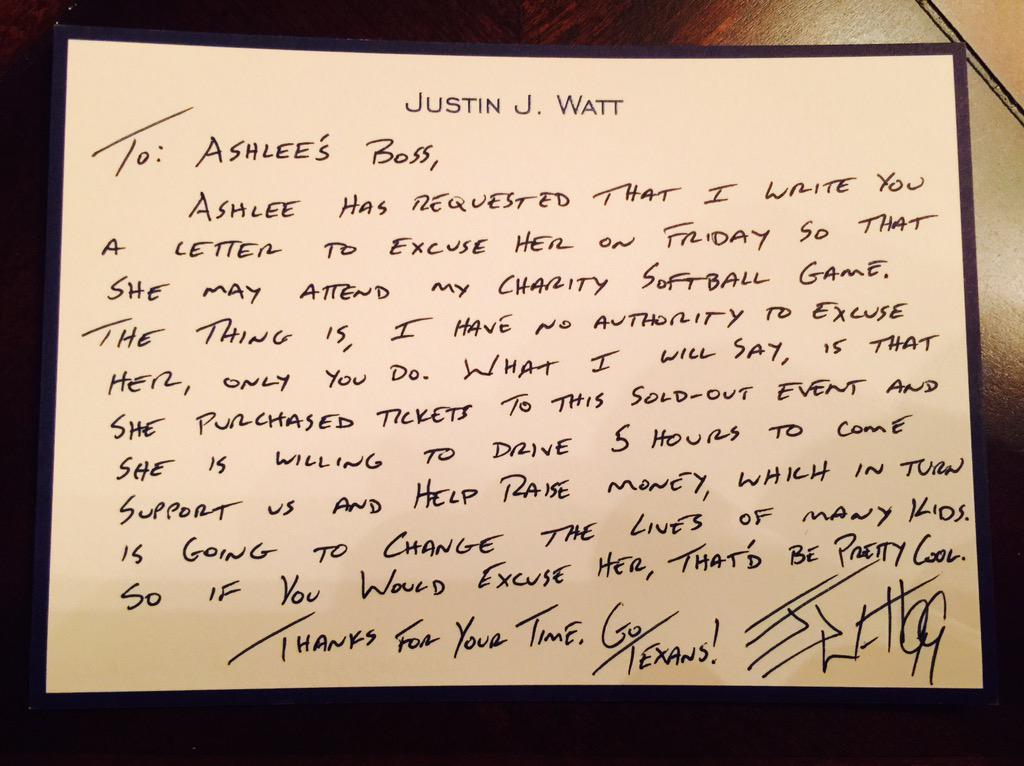 JUSTIN J. WATT
TO: ASHLEE'S BOSS,
ASHLEE HAS REQUESTED THAT I WRITE YOU
A LETTER TO EXCUSE HER ON FRIDAY SO THAT
SHE MAY ATTEND MY CHARITY SOFTBALL GAME.
THE THING IS, I HAVE NO AUTHORITY TO EXCUSE
HER, ONLY YOU DO. WHAT I WILL SAY, IS THAT
SHE PURCHASED TICKETS TO THIS SOLD-OUT EVENT AND
SHE IS WILLING TO DRIVE 5 HOURS TO COME
SUPPORT US AND HELP RAISE MONEY, WHICH IN TURN
IS GOING TO CHANGE THE LIVES OF MANY KIDS.
SO IF YOU WOULD EXCUSE HER, THAT'D BE PRETTY COOL.
THANKS FOR YOUR TIME. GO TEXANS! JJ Watt 99